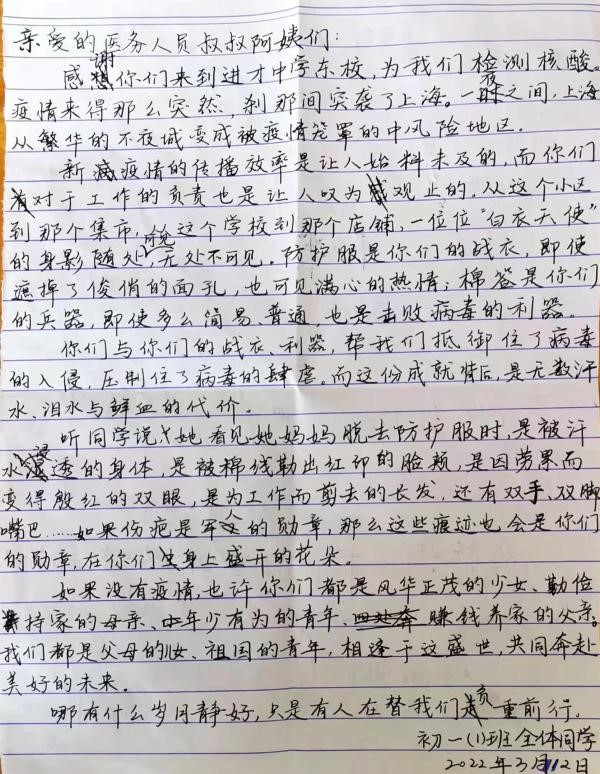 亲爱的医务人员叔叔阿姨们：
感谢你们来到进才中学东校，为我们检测核酸。
疫情来得那么突然，刹那间突袭了上海。一夜之间，上海
从繁华的不夜城变成被疫情笼罩的中风险地区。
新冠疫情的传播效率是让人始料未及的，而你们
对于工作的负责也是让人叹为观止的。从这个小区
到那个集市，从这个学校到那个店铺，一位位“白衣天使”
的身影随处可见，无处不可见。防护服是你们的战衣，即使
遮掉了俊俏的面孔，也可见满心的热情；棉签是你们
的兵器，即使多么简易、普通，也是击败病毒的利器。
你们与你们的战衣、利器，帮我们抵御住了病毒
的入侵，压制住了病毒的肆虐。而这份成就背后，是无数汗
水、泪水与鲜血的代价。
听同学说，她看见她妈妈脱去防护服时，是被汗
水浸透的身体，是被棉线勒出红印的脸颊，是因劳累而
变得殷红的双眼，是为工作而剪去的长发，还有双手、双脚
嘴巴……如果伤疤是军人的勋章，那么这些痕迹也会是你们
的勋章，在你们身上盛开的花朵。
如果没有疫情，也许你们都是风华正茂的少女、勤俭
持家的母亲、年少有为的青年、赚钱养家的父亲。
我们都是父母的儿女、祖国的青年，相逢于这盛世，共同奔赴
美好的未来。
哪有什么岁月静好，只是有人在替我们负重前行。
初一(1)班全体同学
2022年3月12日